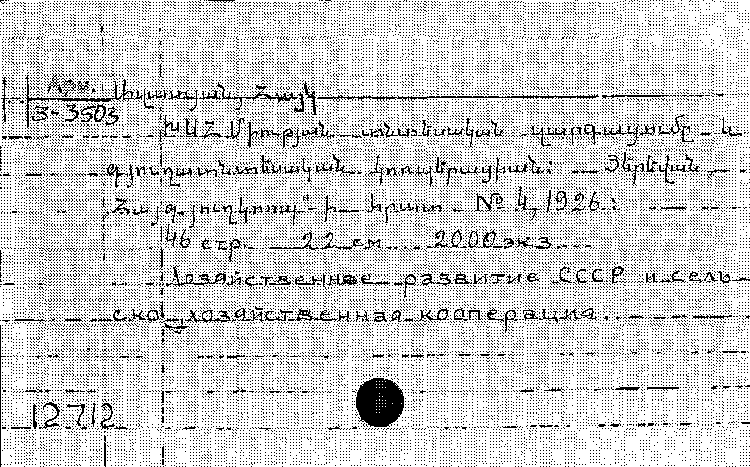 Арм.
Հայկ
5-3503
ԽՍՀ Միության տնտեսական զարգացումը և
գյուղատնտեսական կոոպերացիան: Յերեվան,
"Հայգյուղկոոպ"-ի հրատ. № 4, 1926:
46 стр. 22 см. 2000 экз.
Хозяйственное развитие СССР и сель-
ско-хозяйственная кооперация.
12712